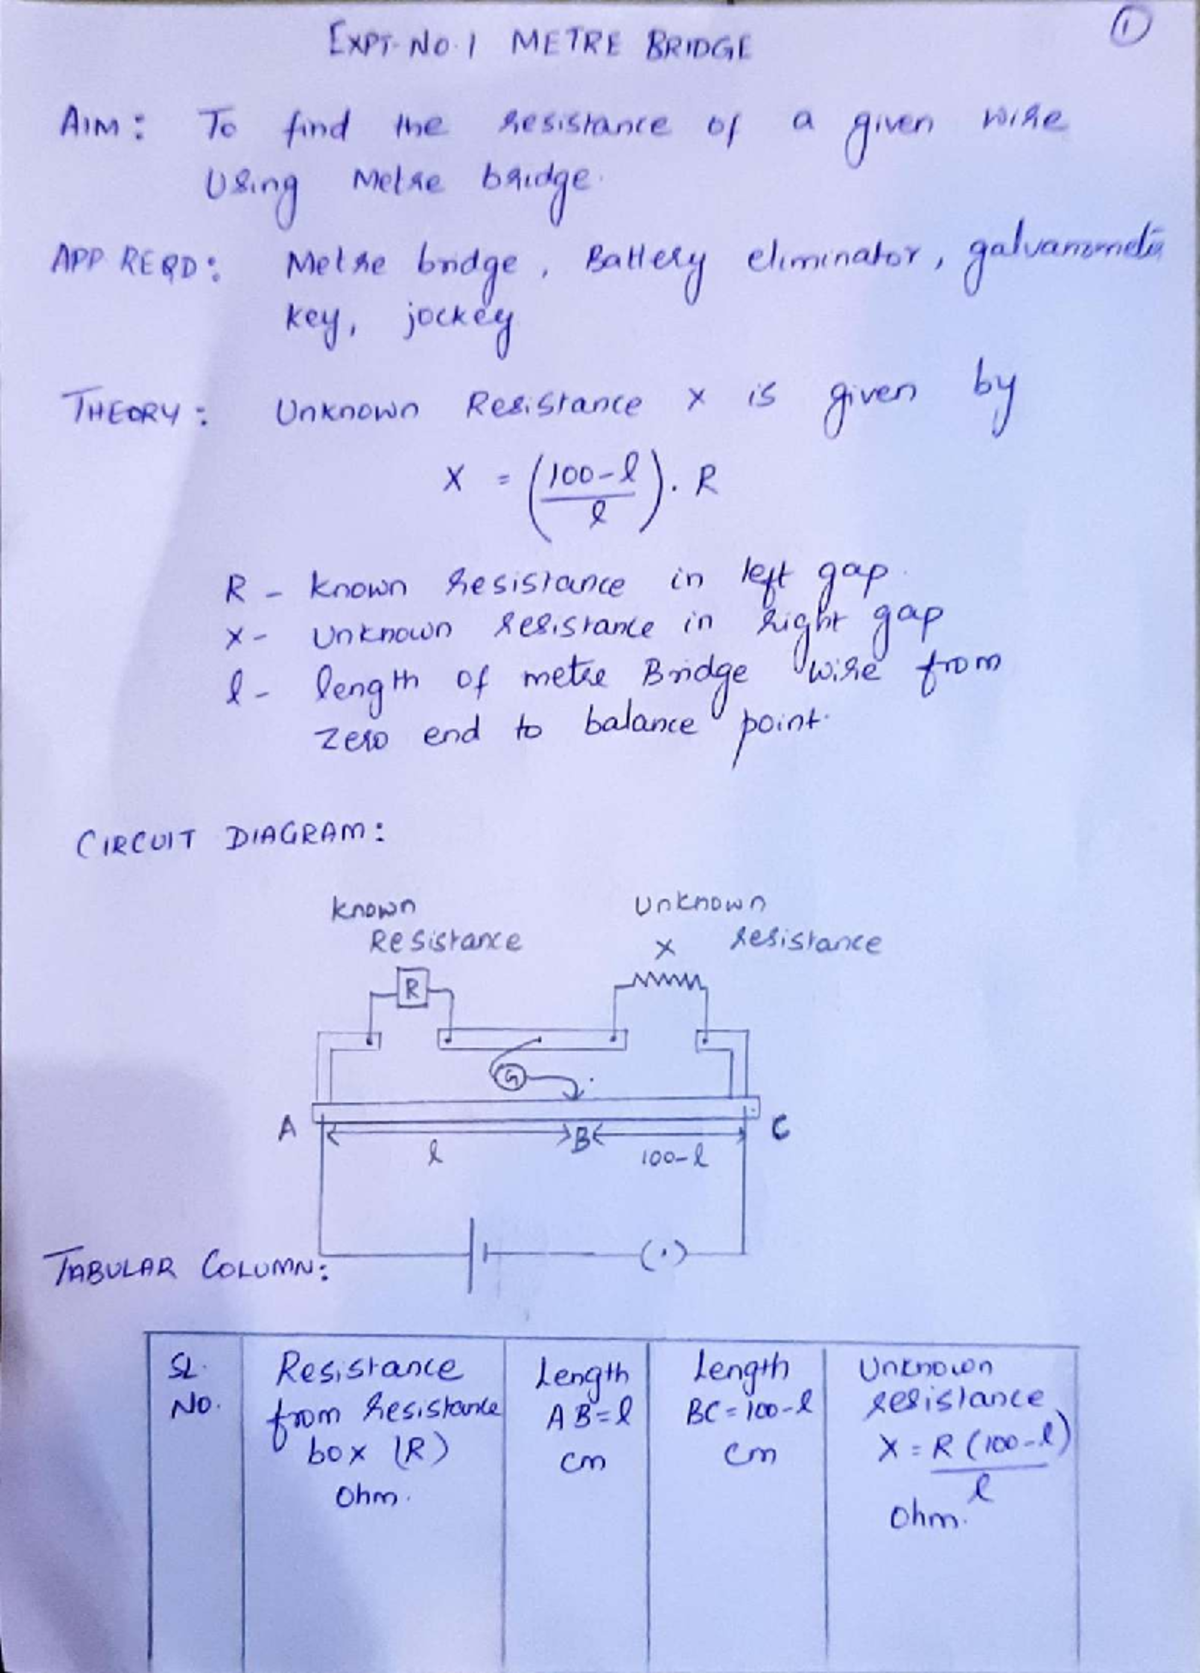 ①
EXPT. NO. 1 METRE BRIDGE
AIM: To find the resistance of a given wire
Using Metre bridge.
APP REQD: Metre bridge, Battery eliminator, galvanometer
key, jockey
THEORY: Unknown Resistance X is given by
X = (100-l / l) . R
R - known resistance in left gap.
X - Unknown resistance in right gap
l - length of metre Bridge wire from
zero end to balance point.
CIRCUIT DIAGRAM:
known Resistance
Unknown resistance
X
R
G
A
l
B
100-l
C
TABULAR COLUMN:
SL. No.
Resistance from resistance box (R) Ohm.
Length AB=l cm
Length BC=100-l cm
Unknown resistance X = R(100-l) / l Ohm.